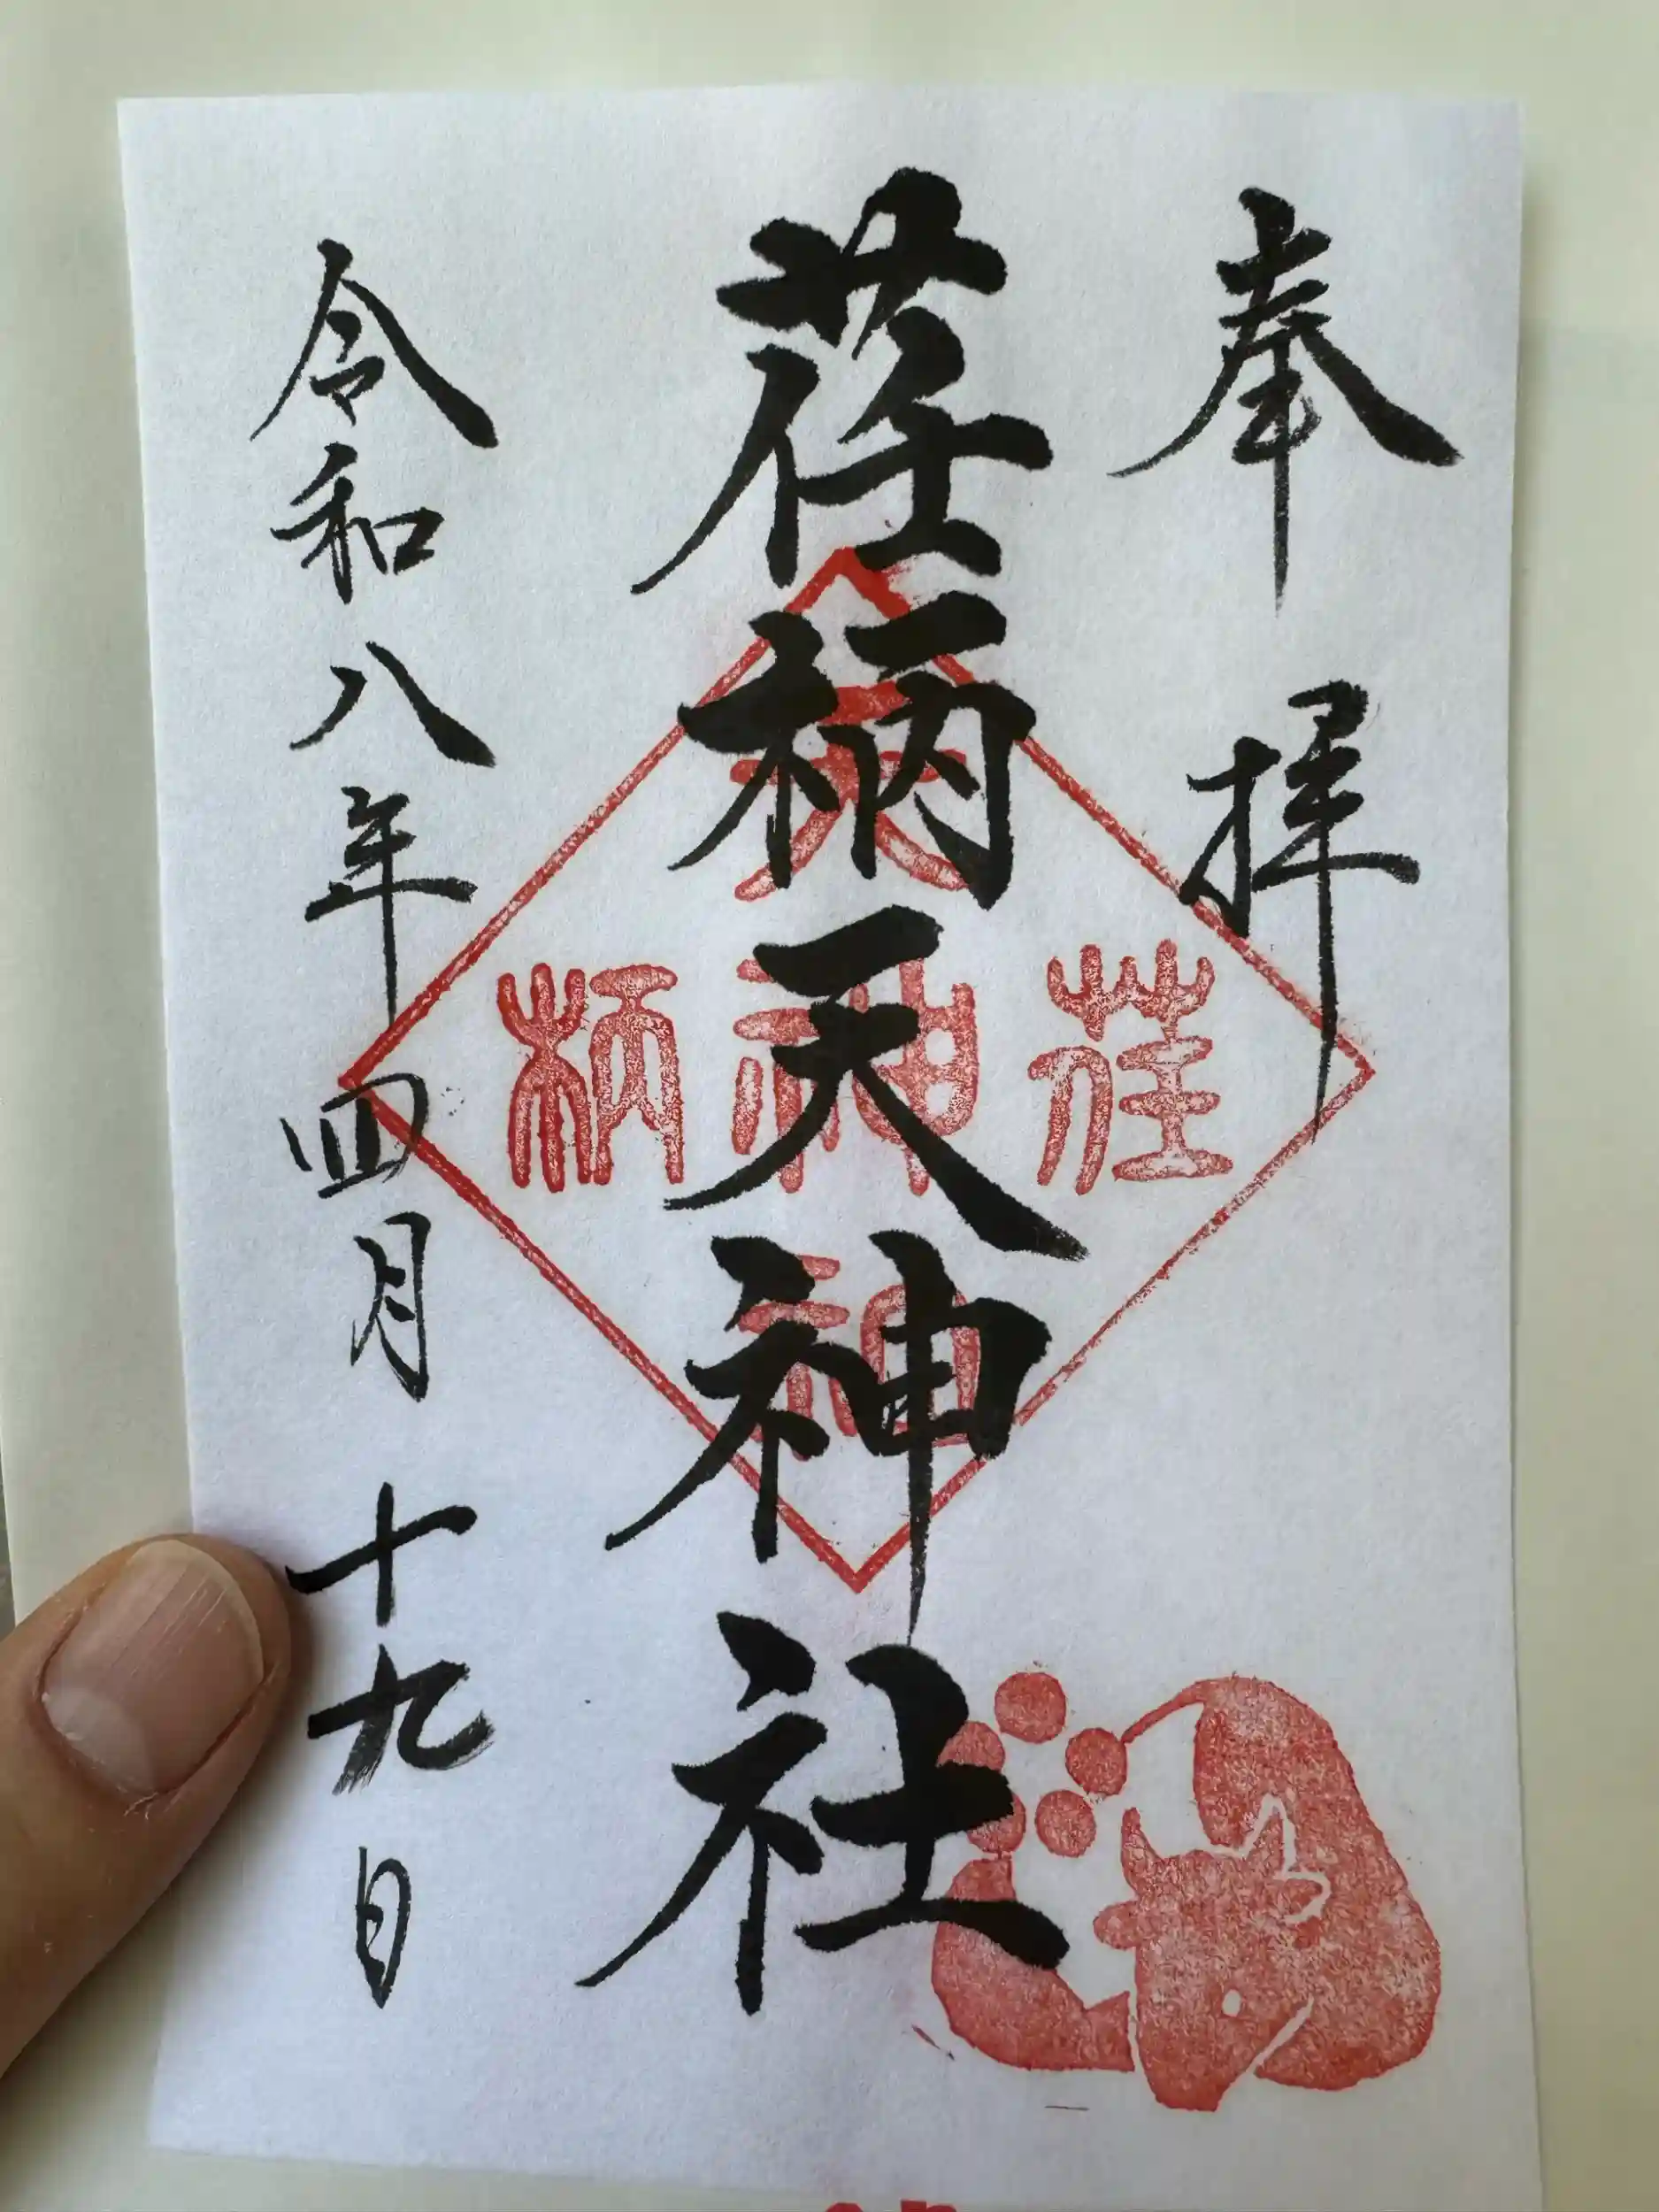 奉拝
荏柄天神社
荏
天神神
柄
令和八年四月十九日